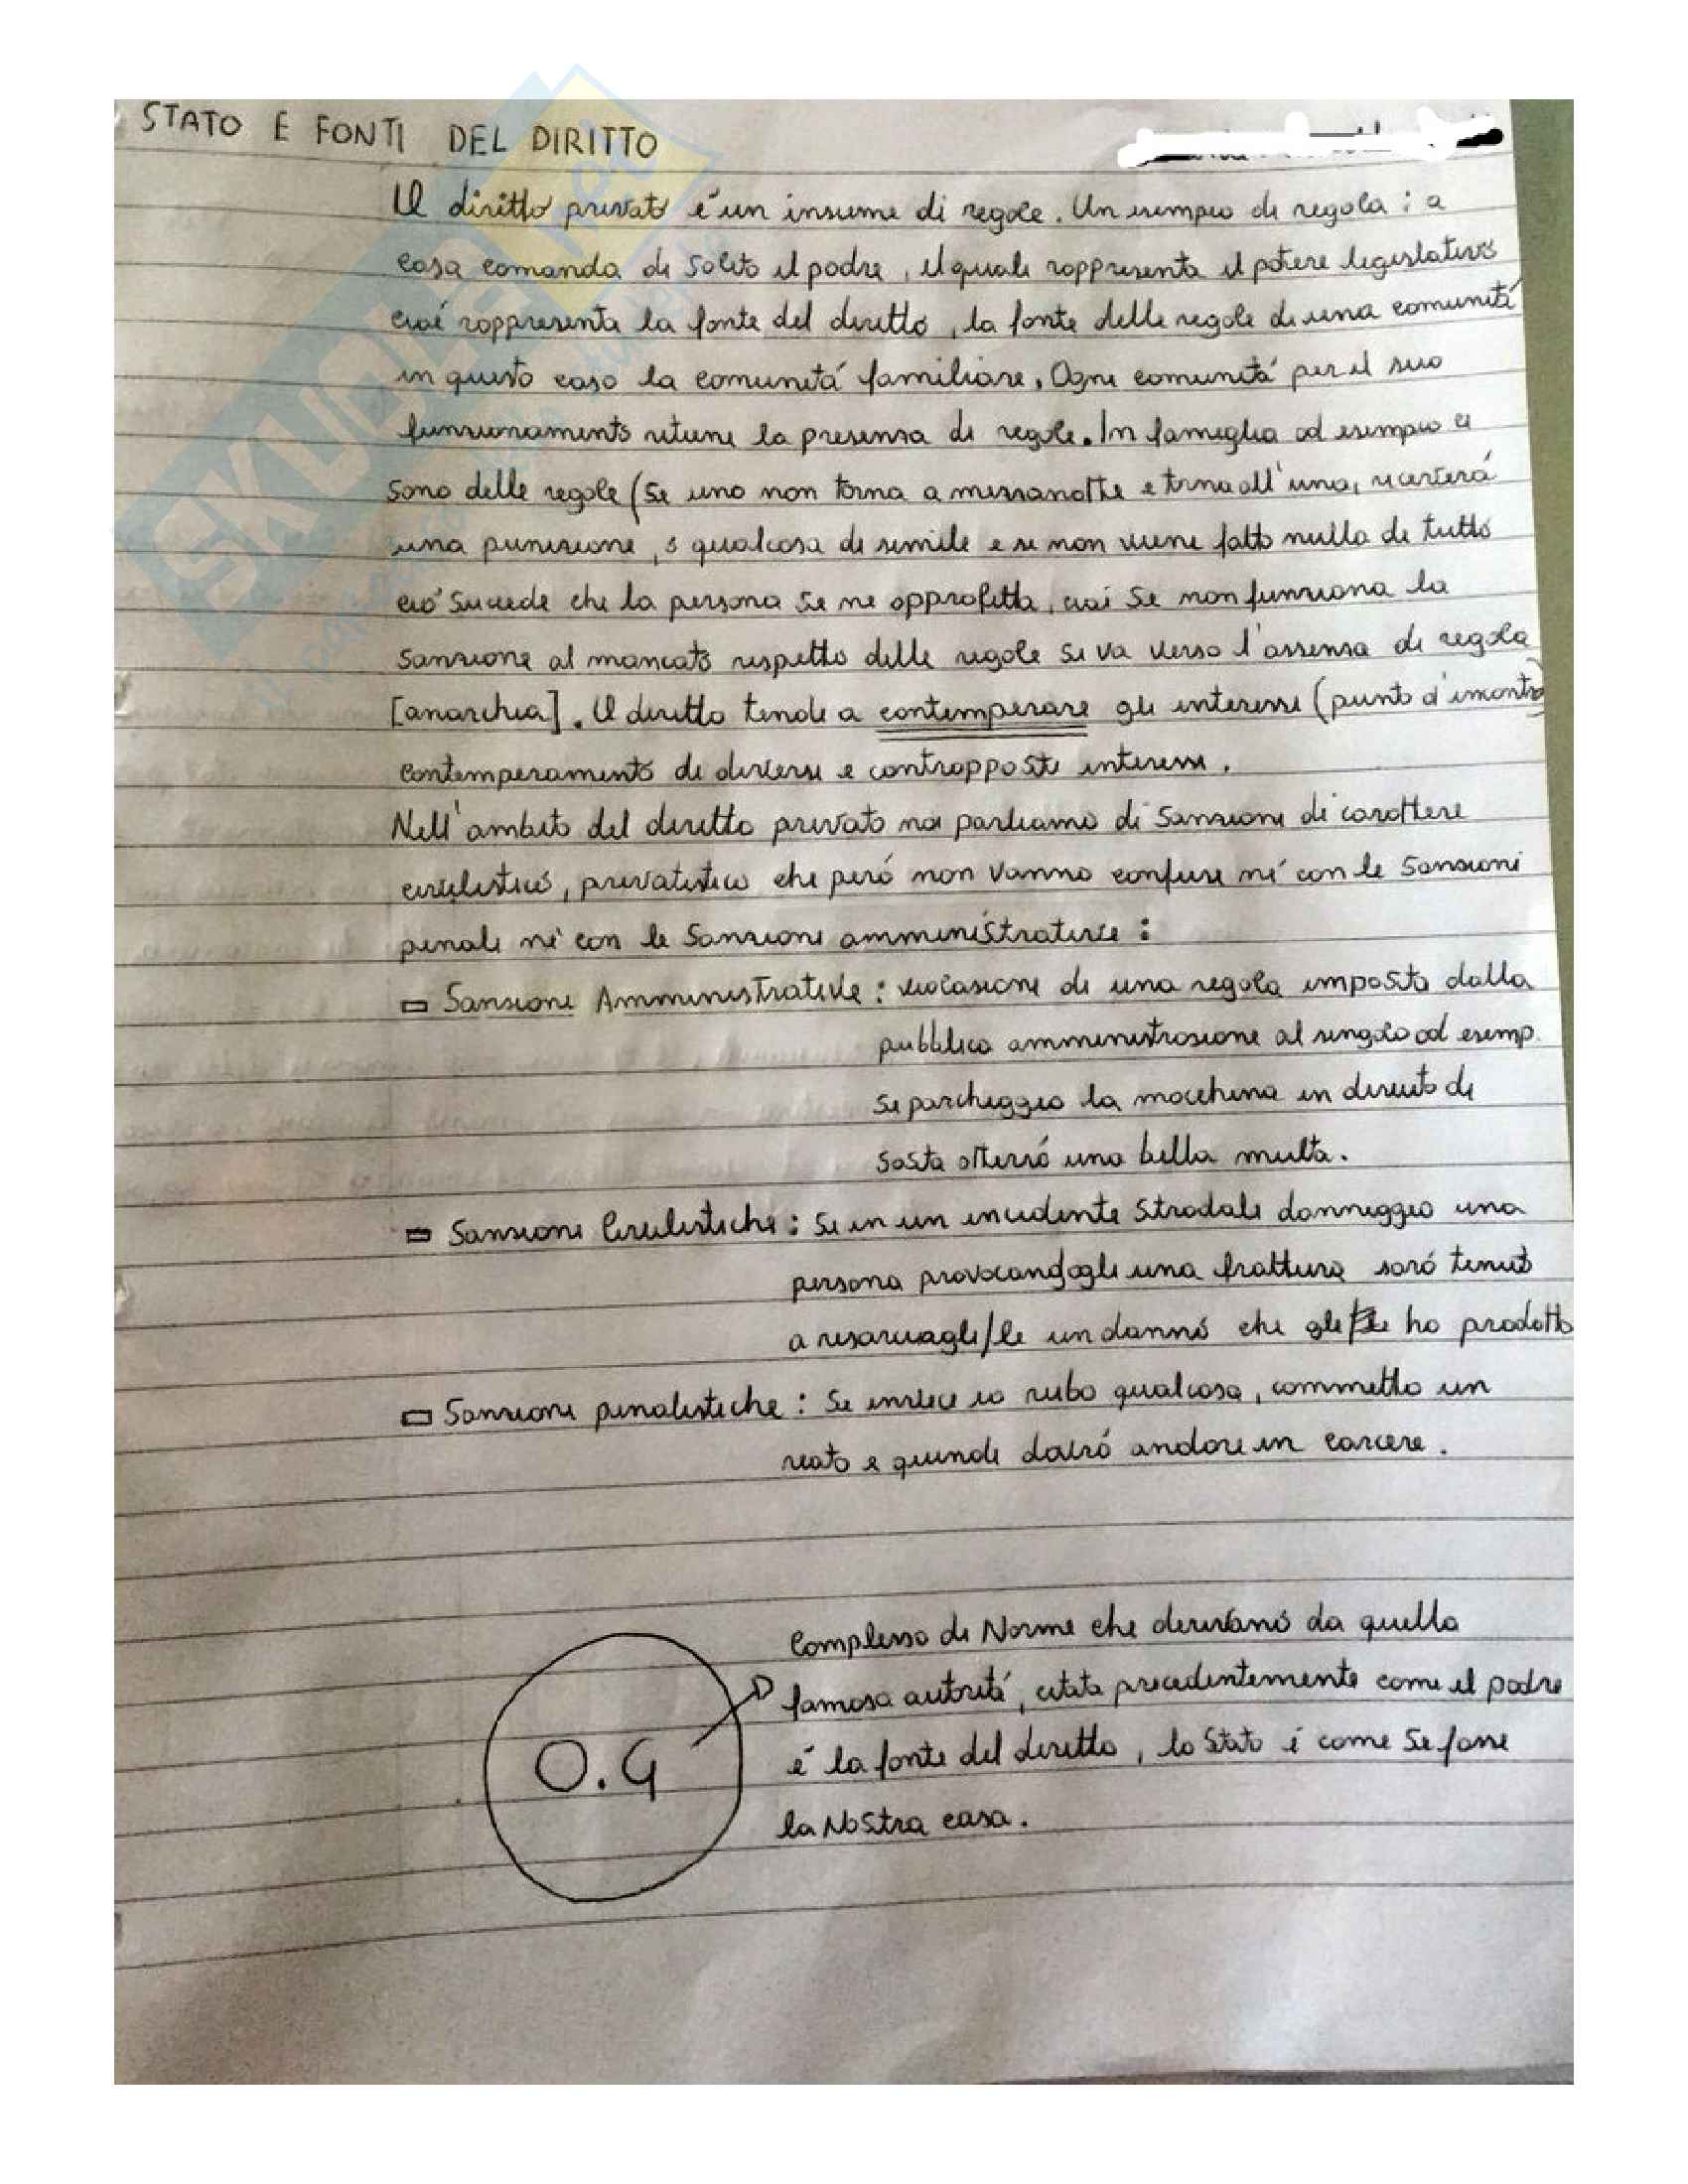 STATO E FONTI DEL DIRITTO
Il diritto privato é un insieme di regole. Un esempio di regola : a
casa comanda di solito il padre, il quale rappresenta il potere legislativo
cioé rappresenta la fonte del diritto, la fonte delle regole di una comunitá
in questo caso la comunitá familiare. Ogni comunitá per il suo
funzionamento ritiene la presenza di regole. In famiglia ad esempio ci
sono delle regole (se uno non torna a mezzanotte e torna all'una, riceverá
una punizione, o qualcosa di simile e se non viene fatto nulla di tutto
ció succede che la persona se ne approfitta, cioé se non funziona la
sanzione al mancato rispetto delle regole si va verso l'assenza di regola
[anarchia]. Il diritto tende a contemperare gli interessi (punto d'incontro)
contemperamento di diversi e contrapposti interessi.
Nell'ambito del diritto privato noi parliamo di sanzioni di carattere
civilistico, privatistico che peró non vanno confuse né con le sanzioni
penali né con le sanzioni amministrative :
Sanzioni Amministrative : violazione di una regola imposta dalla
pubblica amministrazione al singolo ad esemp.
se parcheggio la macchina in divieto di
sosta otterró una bella multa.
Sanzioni Civilistiche : se in un incidente stradale danneggio una
persona provocandogli una frattura saró tenuto
a risarcirgli/le un danno che gli/le ho prodotto
Sanzioni penalistiche : Se invece io rubo qualcosa, commetto un
reato e quindi dovró andare in carcere.
Complesso di Norme che derivano da quella
famosa autoritá, citata precedentemente come il padre
O.G
é la fonte del diritto, lo Stato é come se fosse
la Nostra casa.
SKUOLA.net